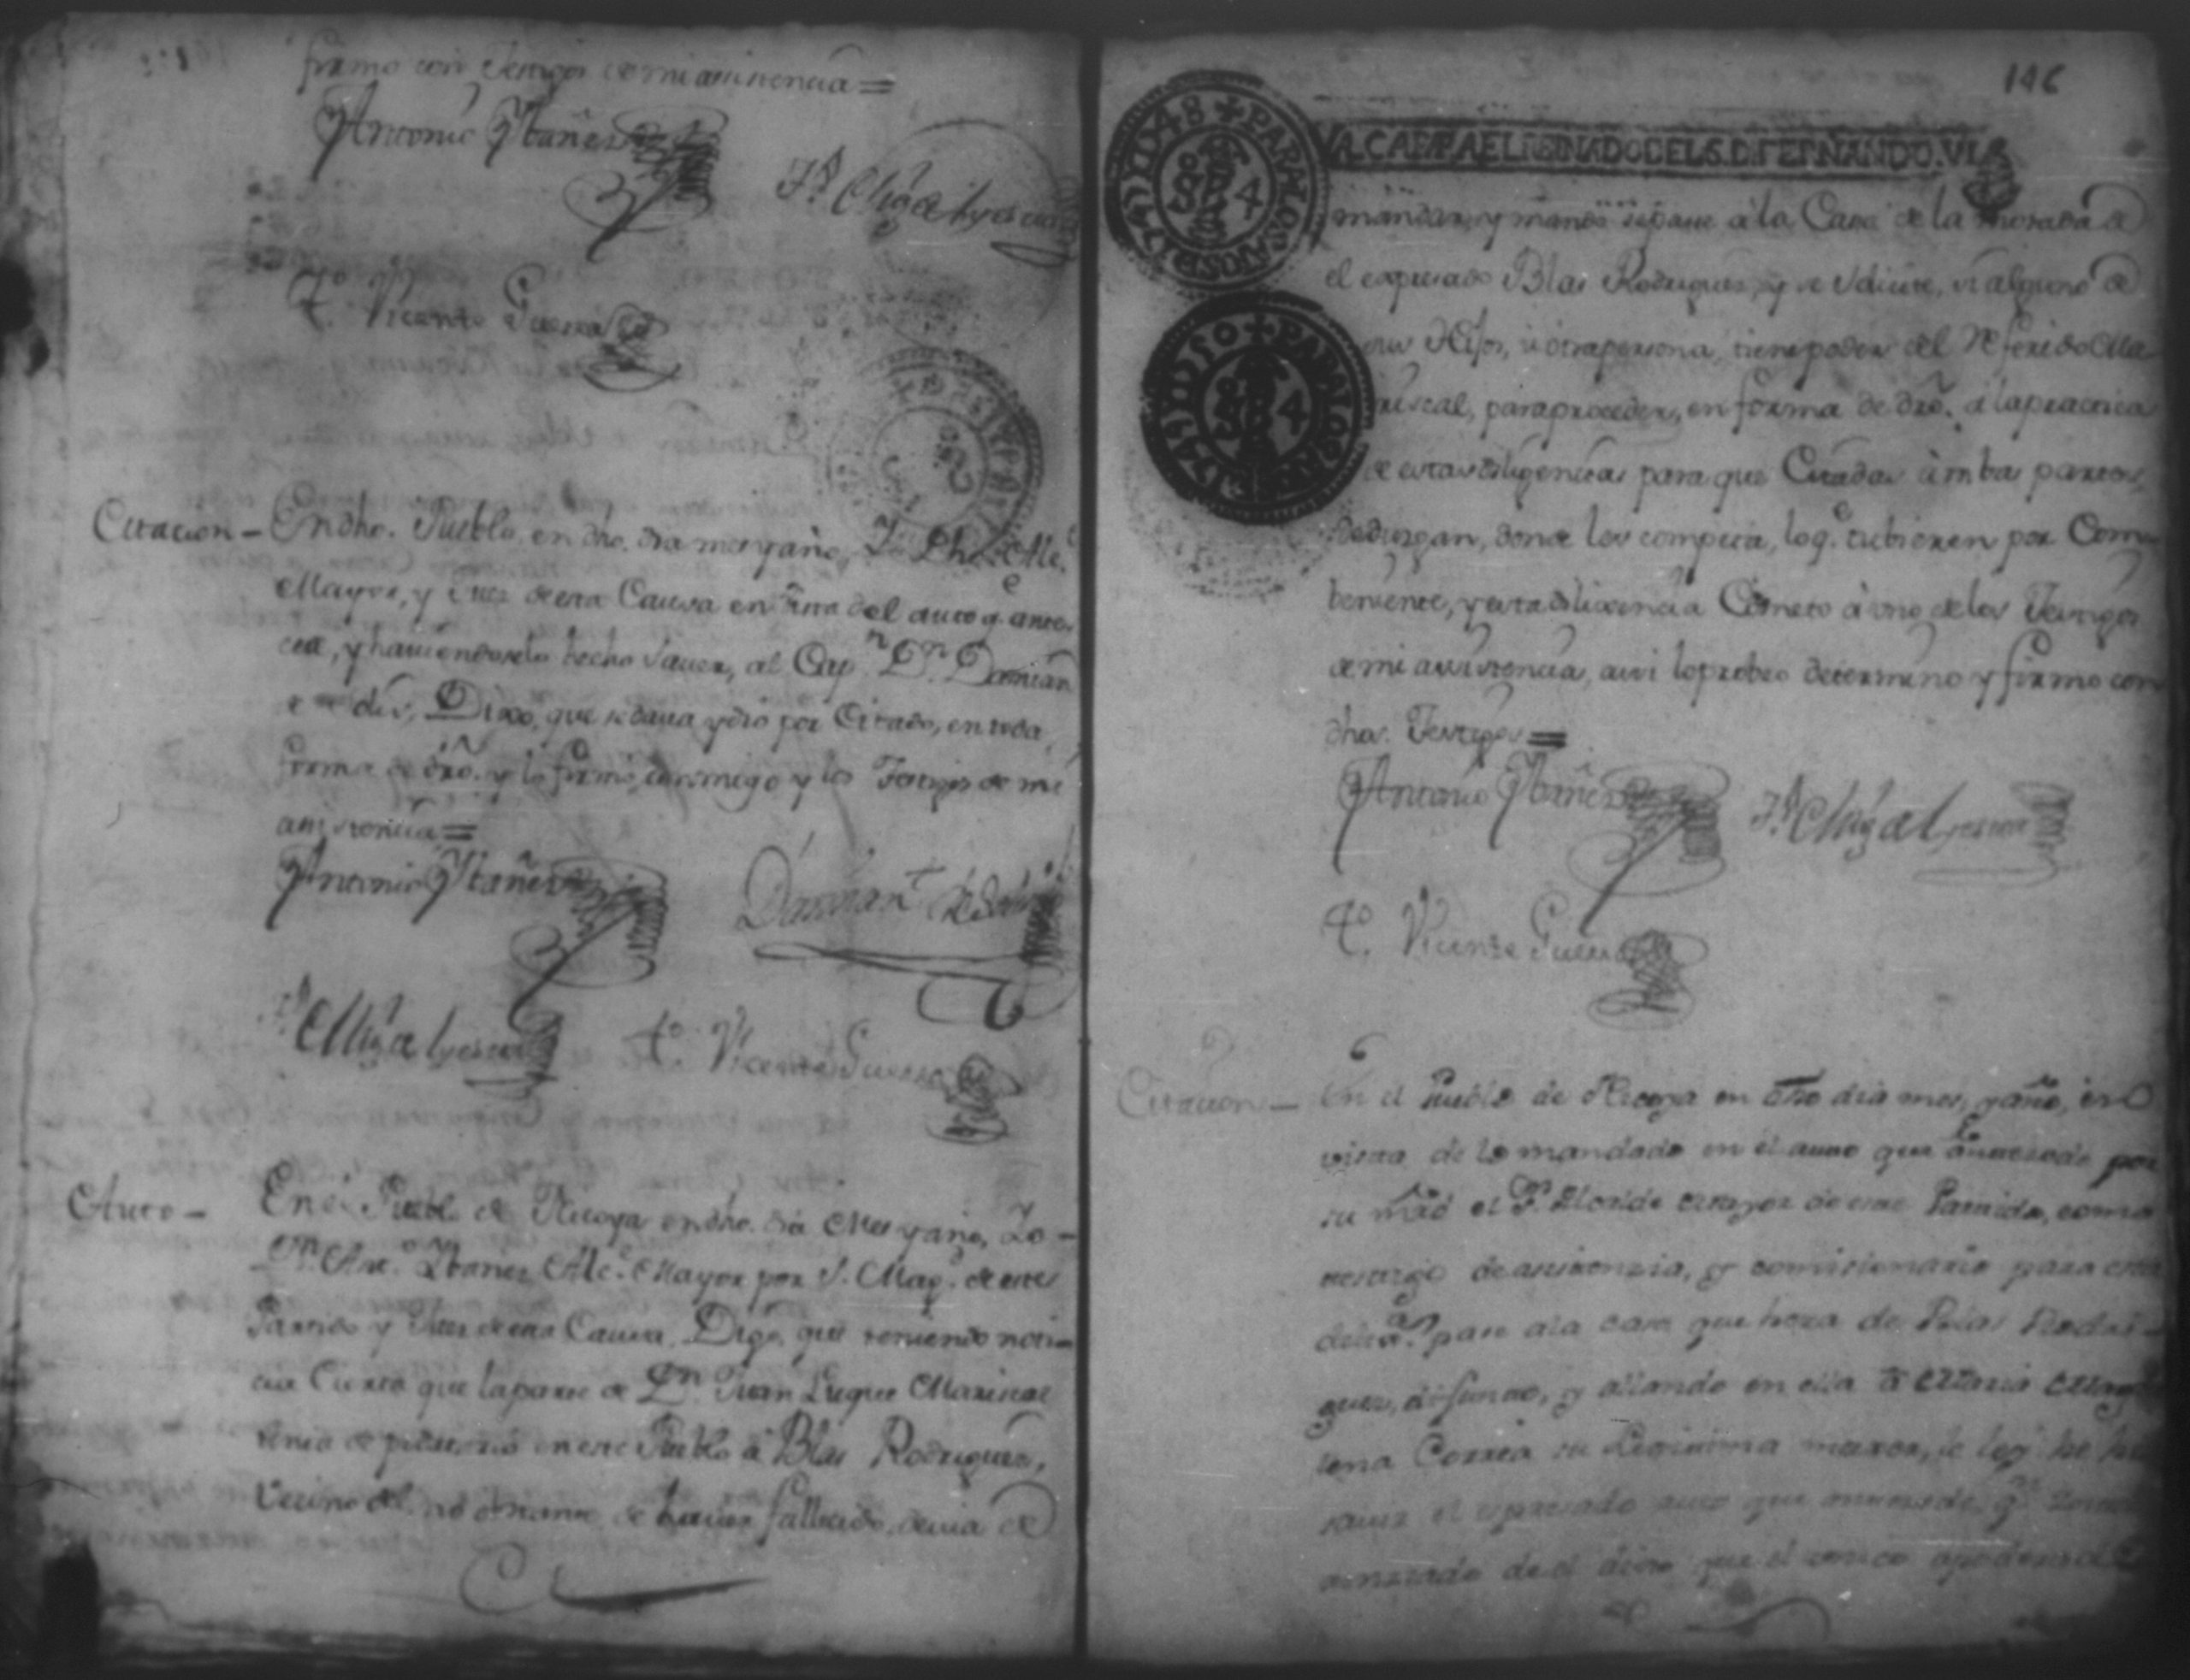 firmo con Testigos de mi asistencia =
Antonio Ybañez
Vicente Guerra
Citacion – En dho. Pueblo, en dho. dia mes y año, Yo dho. Alc.e
Mayor, y Juez de esta Causa en vista del auto q.e antes
cede, y haviendoselo hecho saver, al Cap.n D.n Damian
Dixo, que se dava y dio por Citado, en toda
forma de dro. y lo firmó, conmigo y los Testigos de mi
asistencia =
Antonio Ybañez
Damian
Vicente Guerra
Auto – En el Pueblo de Nicoya en dho. dia Mes y año, Yo –
D.n Ant.o Ybañez Alc.e Mayor por S. Mag.d de este
Partido y Juez de esta Causa. Digo, que teniendo noti–
cia Cierta que la parte de D.n Juan Luque Mariscal
tenia de poder en este Pueblo á Blas Rodriguez,
Vecino de el no obstante de haver fallecido, devia de
146
VALGA PARA EL REINADO DEL S. D. FERNANDO. VI
mandar, y mando se pase á la Casa de la morada de
el expresado Blas Rodriguez, y se solicite, si alguno de
sus Hijos, ú otra persona, tiene poder del Referido Ma–
riscal, para proceder, en forma de dro. á la practica
de estas diligencias para que Citadas ambas partes,
deduzgan, donde les competa, lo q.e tubieren por Com–
beniente, y esta dilixencia Cometo á uno de los Testigos
de mi asistencia, assi lo probeo determino y firmo con
dhos. Testigos =
Antonio Ybañez
Vicente Guerra
Citacion – En el Pueblo de Nicoya en dho dia mes, y año, en
vista de lo mandado en el auto que antecede por
su mrd el S.r Alcalde mayor de este Partido, como
testigo de asistencia, y comisionario para esta
delix.as pase a la casa que hera de Blas Rodri–
guez, difunto, y allando en ella á Maria Magda
lena Correa su Lexitima muxer, le ley he hi
saver el expresado auto que antecede q.n
enterada de el dixo que el unico apoderado